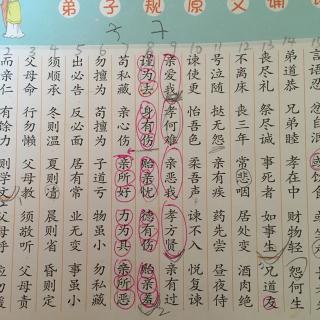 弟子规原文诵
2 3 4 5 6 7 8 9 10 11 12 13 14 15
而亲仁 有余力 则学文 父母呼 应勿缓
父母命 行勿懒 父母教 须敬听 父母责
须顺承 冬则温 夏则凊 晨则省 昏则定
出必告 反必面 居有常 业无变 事虽小
勿擅为 苟擅为 子道亏 物虽小 勿私藏
苟私藏 亲心伤 亲所好 力为具 亲所恶
谨为去 身有伤 贻亲忧 德有伤 贻亲羞
亲爱我 孝何难 亲恶我 孝方贤 亲有过
谏使更 怡吾色 柔吾声 谏不入 悦复谏
号泣随 挞无怨 亲有疾 药先尝 昼夜侍
不离床 丧三年 常悲咽 居处变 酒肉绝
丧尽礼 祭尽诚 事死者 如事生 兄道友
弟道恭 兄弟睦 孝在中 财物轻 怨何生
言语忍